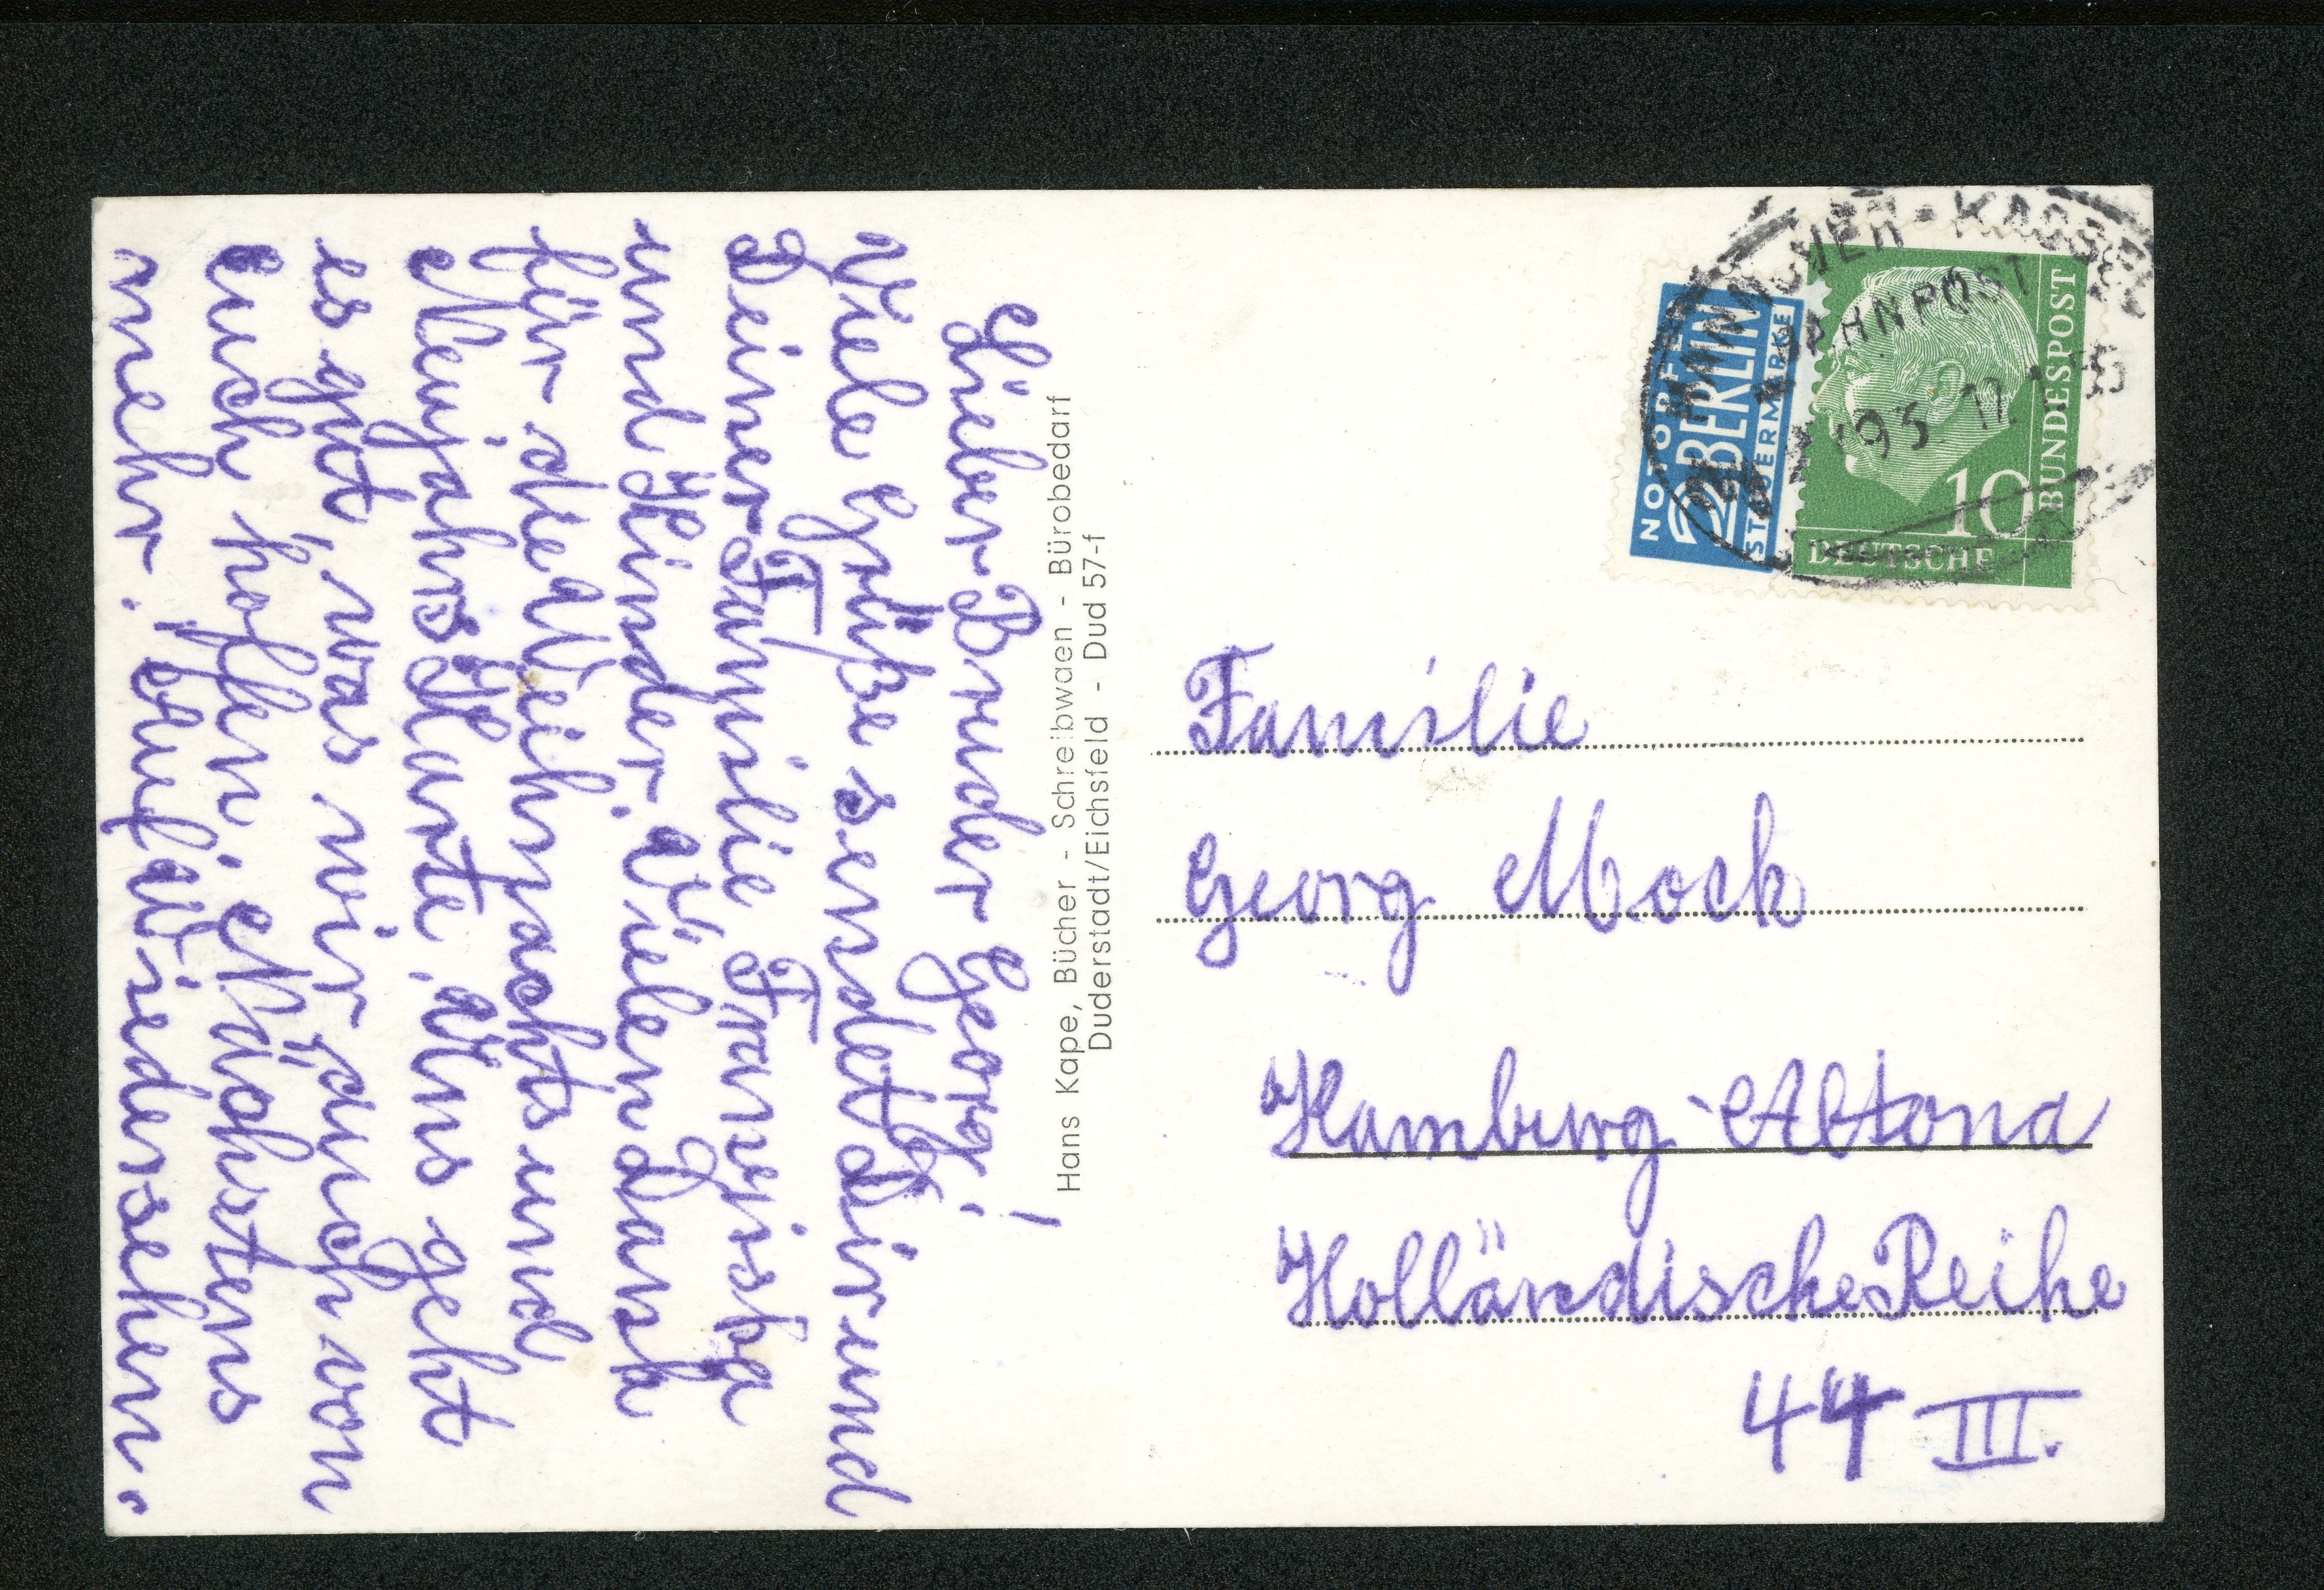 Lieber Bruder Georg!
Viele Grüße sendet Dir und
Deiner Familie Franziska
und Kinder. Vielen Dank
für die Weihnachts und
Neujahrs Karte. Uns geht
es gut, was wir auch von
euch hoffen. Nächstens
mehr. Auf Wiedersehen.
Hans Kape, Bücher - Schreibwaen - Bürobedarf
Duderstadt/Eichsfeld - Dud 57-f
NOTOPFER
2 BERLIN
STEUERMARKE
HANNOVER - KASSEL
BAHNPOST
10
DEUTSCHE
BUNDESPOST
Familie
Georg Mock
Hamburg-Altona
Holländische Reihe
44 III.